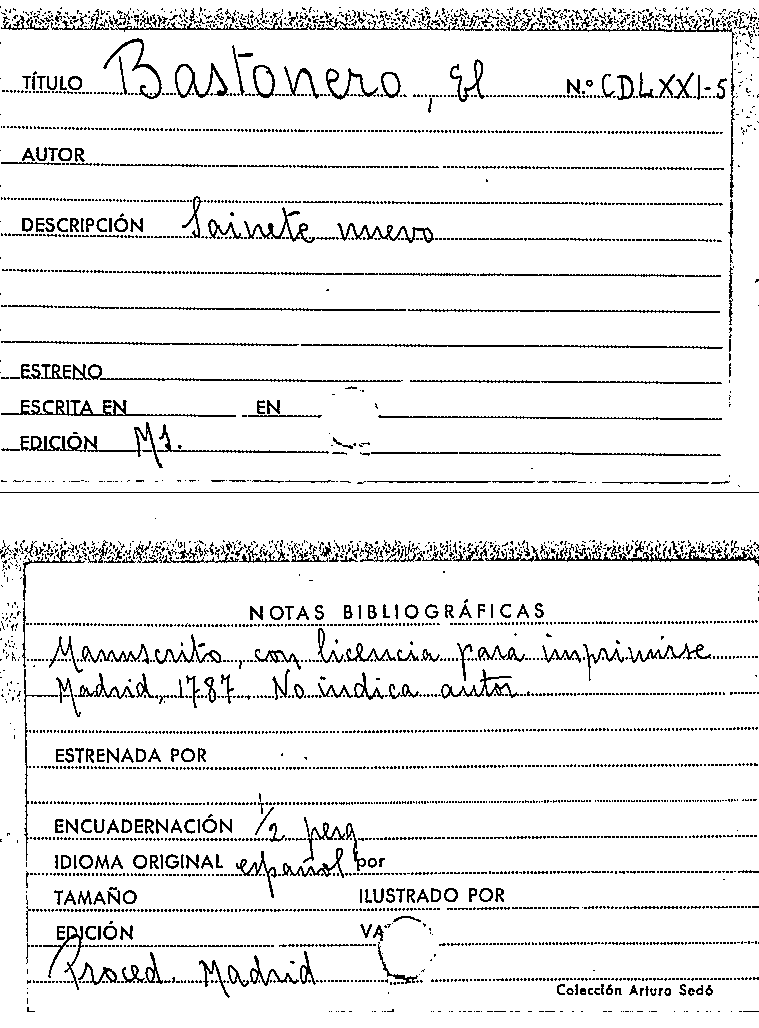 TÍTULO Bastonero, El N.º CDLXXI-5
AUTOR
DESCRIPCIÓN Sainete nuevo
ESTRENO
ESCRITA EN EN
EDICIÓN Ms.
NOTAS BIBLIOGRÁFICAS
Manuscrito, con licencia para imprimirse
Madrid, 1787. No indica autor.
ESTRENADA POR
ENCUADERNACIÓN 1/2 perg
IDIOMA ORIGINAL español por
TAMAÑO ILUSTRADO POR
EDICIÓN VA
Proced. Madrid
Colección Arturo Sedó